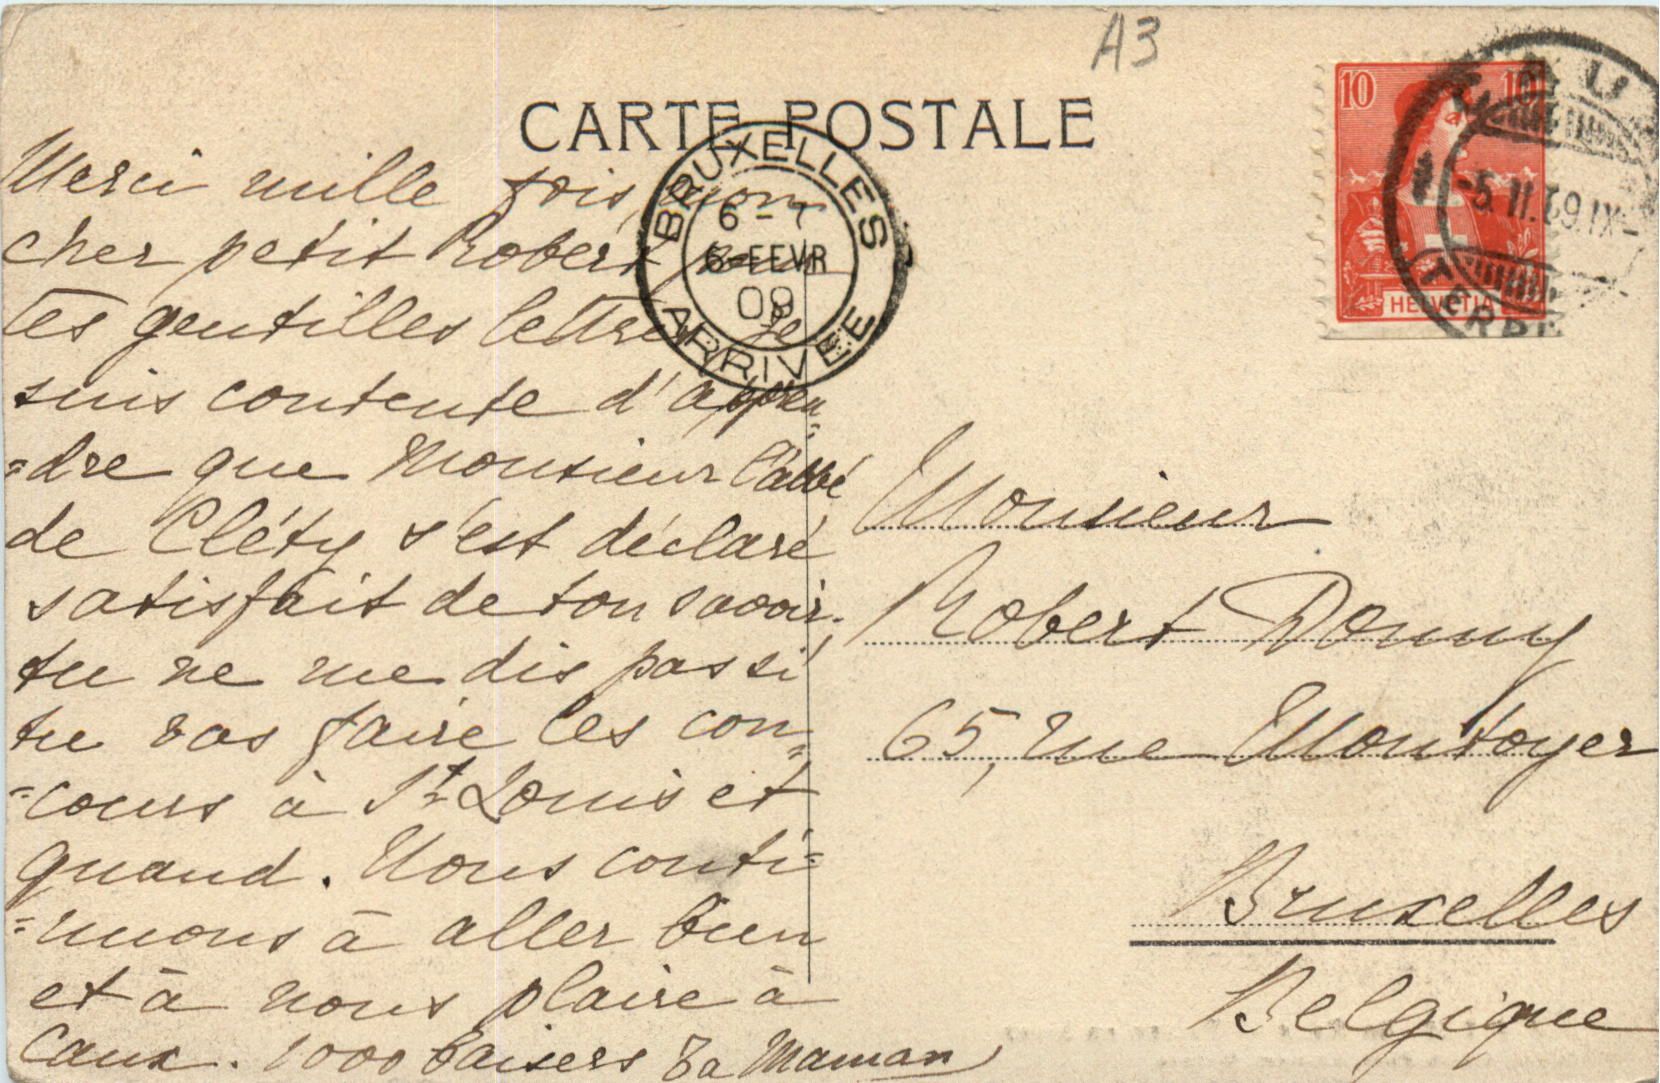 A3
CARTE POSTALE
10 10
HELVETIA
-5.II.09.IX-
BRUXELLES
6-7
6-FEVR
09
ARRIVEE
Merci mille fois, mon
cher petit Robert pour
tes gentilles lettres je
suis contente d'appren
=dre que Monsieur l'abbé
de Cléty s'est déclaré
satisfait de ton savoir.
tu ne me dis pas si
tu vas faire les con=
=cours à St Louis et
quand. Nous conti=
=nuons à aller bien
et à nous plaire à
Caux. 1000 baisers Ta Maman
Monsieur
Robert Donny
65, rue Montoyer
Bruxelles
Belgique